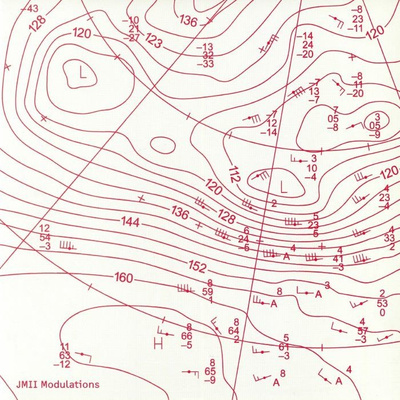 -43
128
120
-10
21
-27
123
136
-13
32
-33
-14
24
-20
-8
23
-11
120
L
-7
13
-7
-8
11
-20
7
05
-8
3
05
-9
-7
12
-14
112
3
10
-4
L
2
120
128
136
144
120
4
23
-4
5
23
5
6
24
-5
4
A
4
41
-3
4
33
2
12
54
-3
152
160
8
59
1
8
A
3
A
2
53
0
8
66
-5
H
8
64
2
4
57
-3
5
61
-3
11
63
-12
8
65
-9
8
A
4
A
JMII Modulations